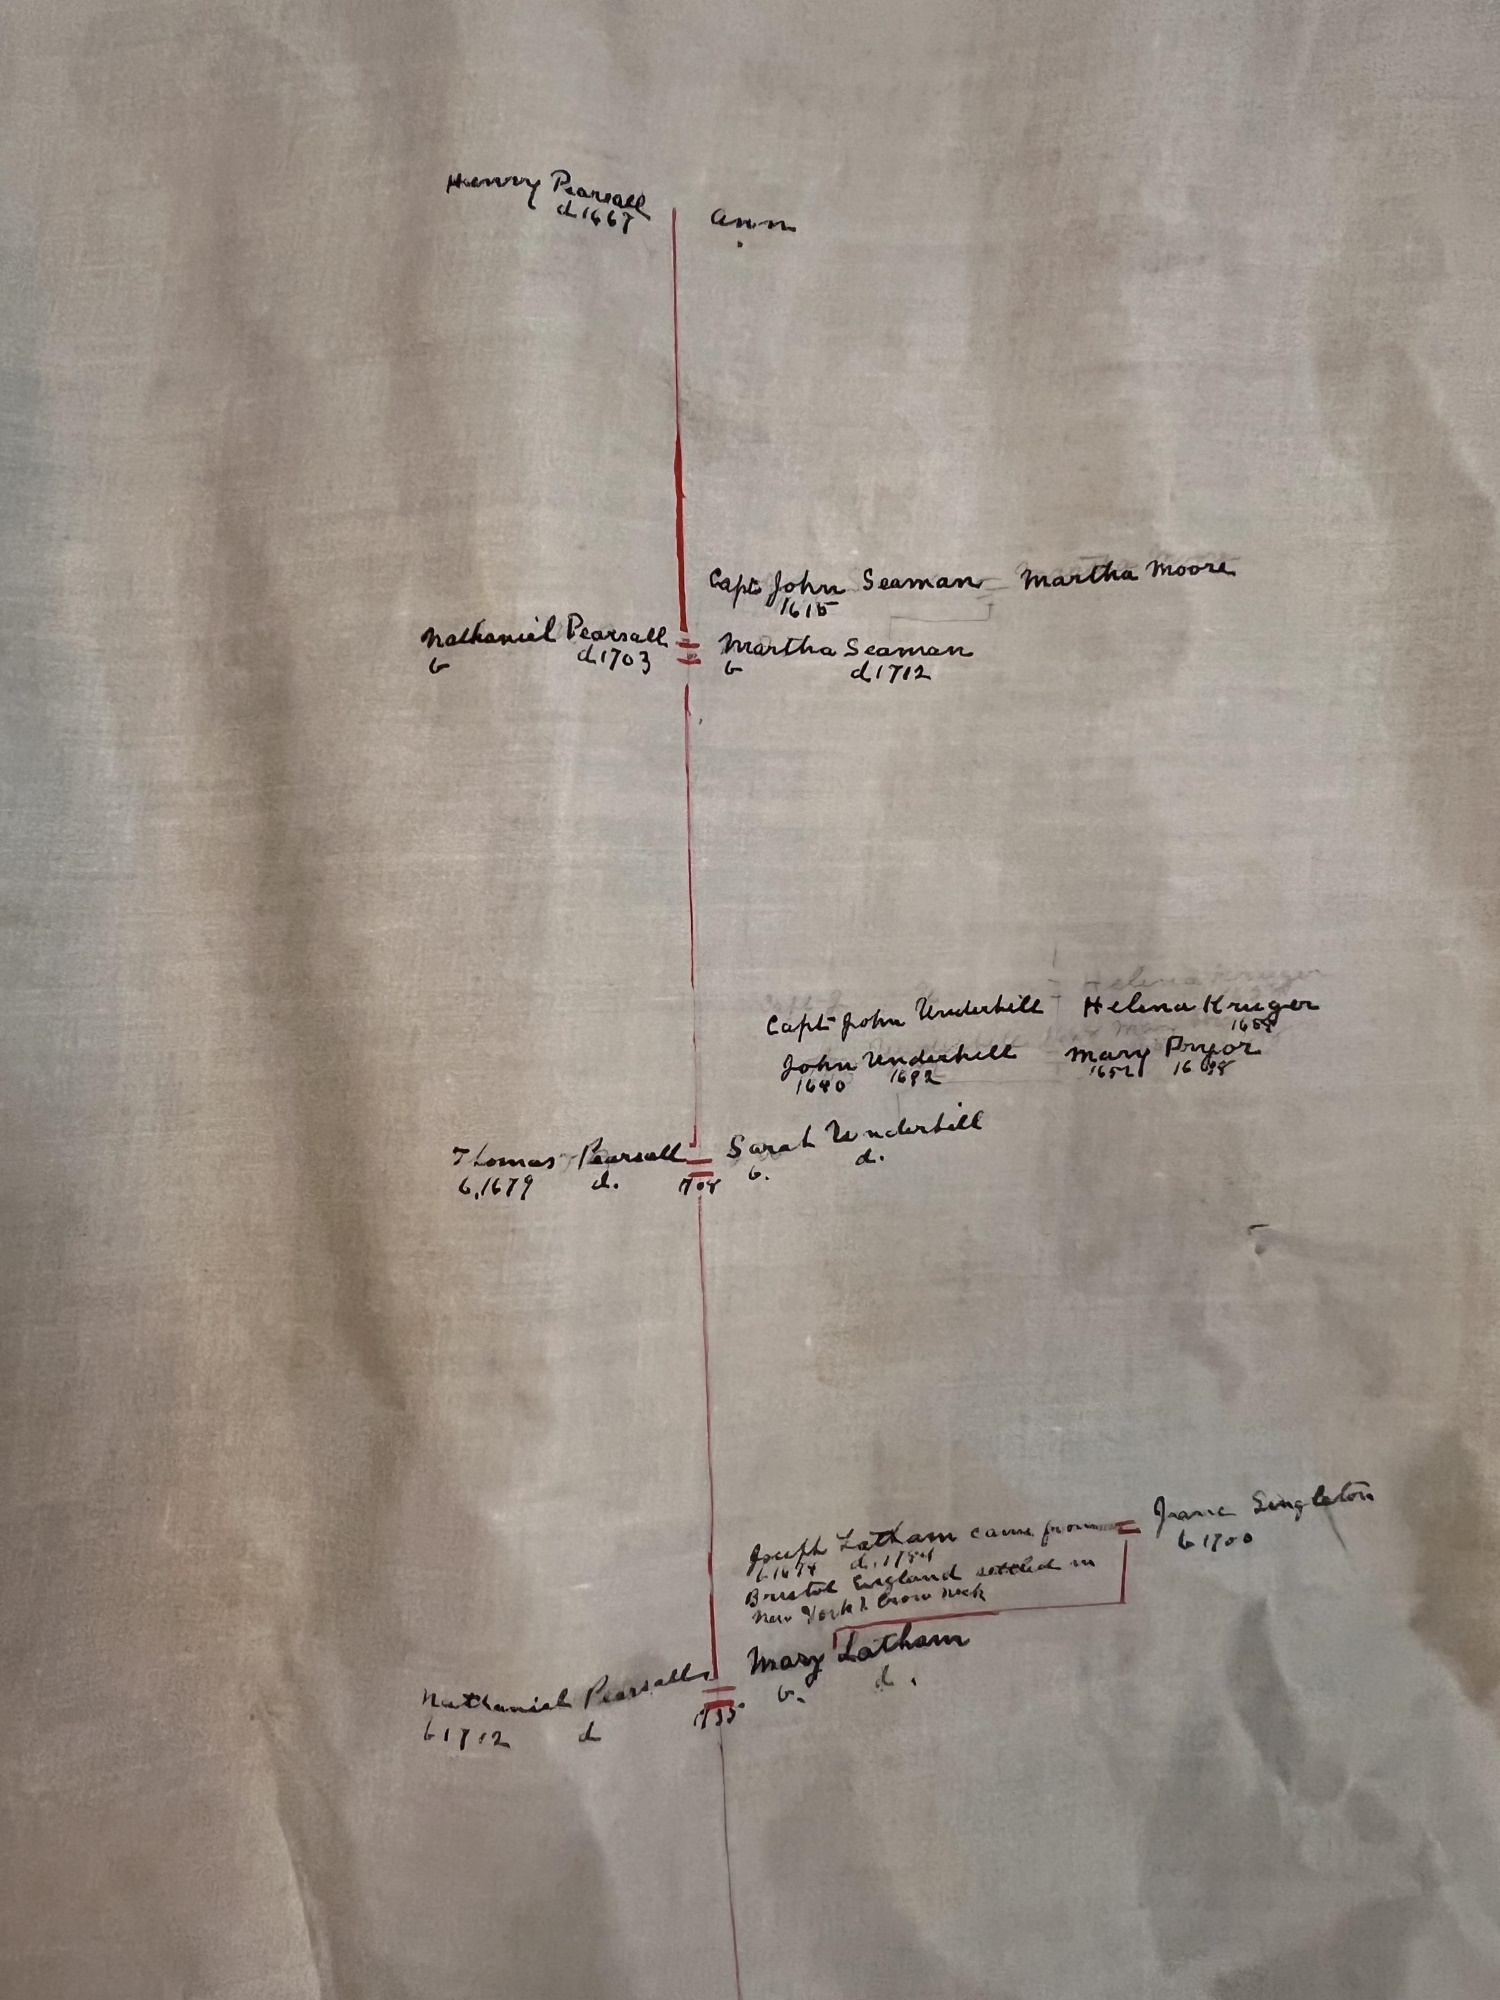 Henry Pearsall Ann
d 1667
Capt John Seaman Martha Moore
1615
Nathaniel Pearsall Martha Seaman
b d 1703 b d 1712
Helena Kruger
Capt John Underhill Helena Kruger
1658
John Underhill Mary Pryor
1640 1692 1652 1698
Thomas Pearsall Sarah Underhill
b. 1679 d. 1708 b. d.
Jane Singleton
b 1700
Joseph Latham came from
b 1674 d. 1784
Bristol England settled in
New York & Cow Neck
Mary Latham
b. d.
Nathaniel Pearsall
b 1712 d 1735